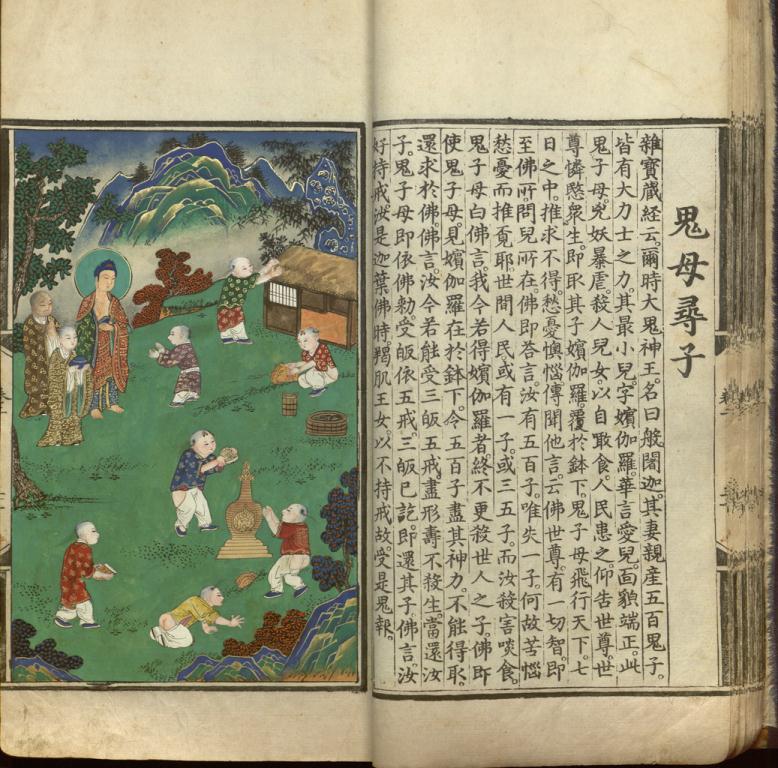 鬼母尋子
雜寶藏経云。爾時大鬼神王。名曰般闍迦。其妻親産五百鬼子。
皆有大力士之力。其最小兒。字嬪伽羅。華言愛兒。面貌端正。此
鬼子母。兇妖暴虐。殺人兒女。以自啖食。人民患之。仰告世尊。世
尊憐愍衆生。即取其子嬪伽羅。覆於鉢下。鬼子母飛行天下。七
日之中。推求不得。愁憂懊惱。傳聞他言。云佛世尊。有一切智。即
至佛所。問兒所在。佛即答言。汝有五百子。唯失一子。何故苦惱
愁憂而推覔耶。世間人民。或有一子。或三五子。而汝殺害啖食。
鬼子母白佛言。我今若得嬪伽羅者。終不更殺世人之子。佛即
使鬼子母見嬪伽羅在於鉢下。令五百子盡其神力。不能得取。
還求於佛。佛言。汝今若能受三皈五戒。盡形壽不殺生。當還汝
子。鬼子母即依佛勅。受皈依五戒。三皈已訖。即還其子。佛言。汝
好持戒。汝是迦葉佛時。羯肌王女。以不持戒故。受是鬼報。